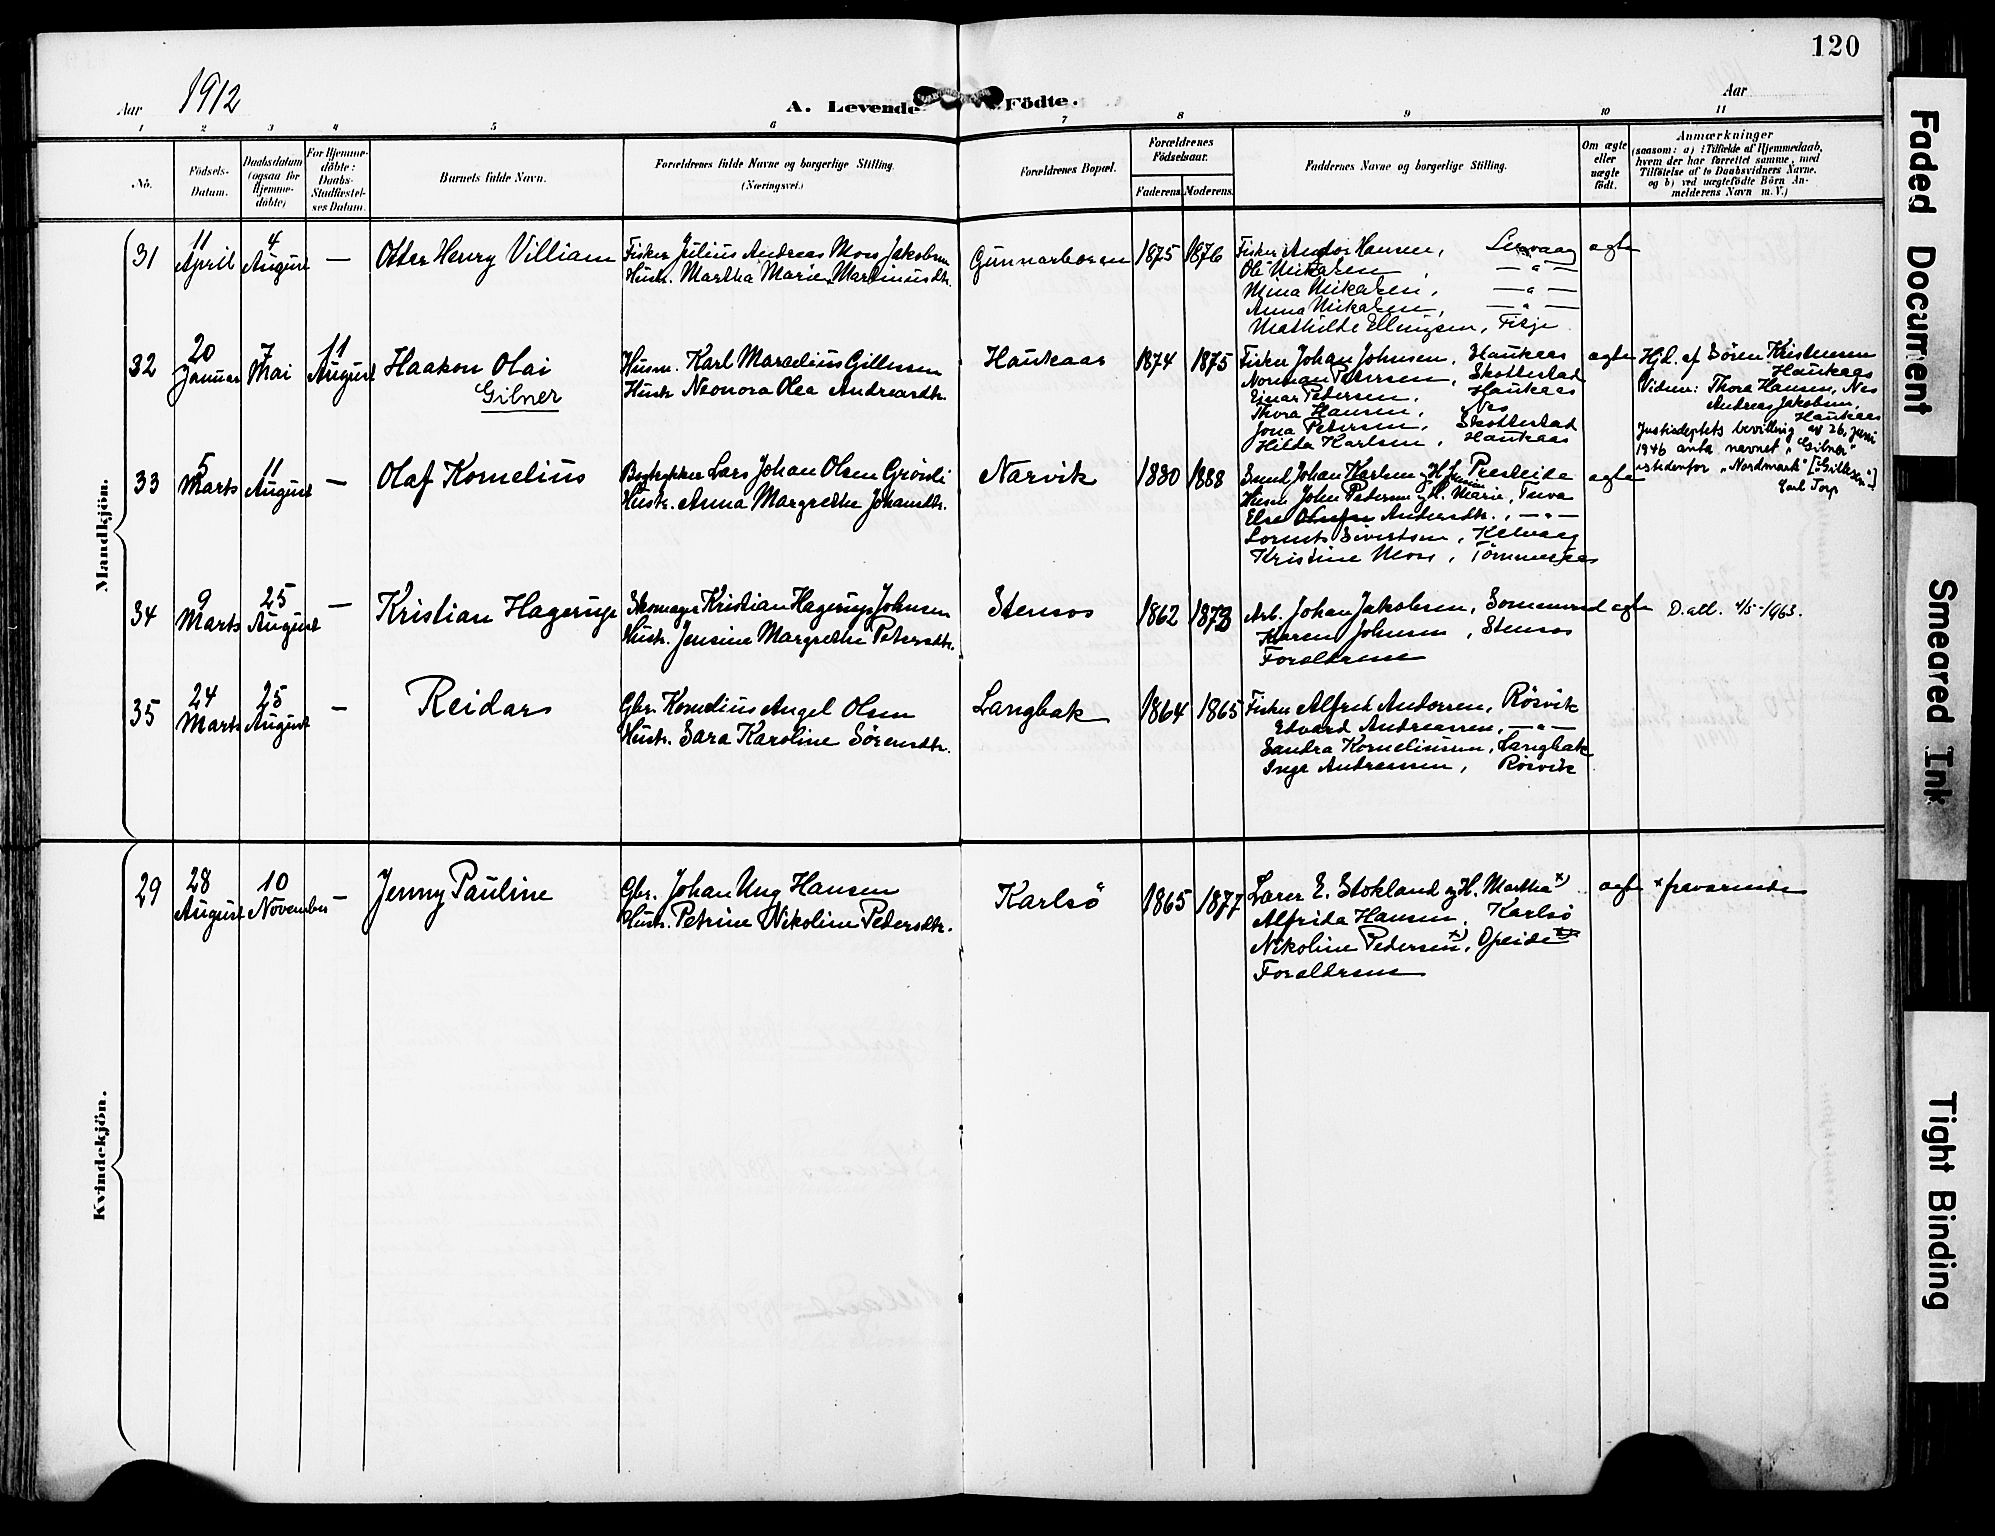 120
Aar 1912
A. Levende Födte.
Aar
1 2 3 4 5 6 7 8 9 10 11
No.
Födsels-
Datum.
Daabsdatum
(ogsaa for
Hjemme-
döbte)
For Hjemme-
döbte:
Daabs-
Stadfæstel-
ses Datum.
Barnets fulde Navn.
Forældrenes fulde Navne og borgerlige Stilling.
(Næringsvei.)
Forældrenes Bopæl.
Forældrenes
Födselsaar.
Faderens. Moderens.
Faddernes Navne og borgerlige Stilling.
Om ægte
eller
uægte
födt.
Anmærkninger
(saasom: a) i Tilfælde af Hjemmedaab,
hvem der har forrettet samme, med
Tilföielse af to Daabsvidners Navne.
og b) ved uægtefödte Börn An-
melderens Navn m. V.)
Mandkjön.
31
11
April
4
August
—
Otter Henry Villiam
Fisker Julius Andreas Mons Jakobsen
Hustr. Martha Marie Martinusdtr.
Gunnarboren
1875
1876
Fisker Andor Hansen, Lervaag
Ole Mikalsen, — " —
Mina Mikalsen, — " —
Anna Mikalsen, — " —
Mathilde Ellingsen,
ægte
32
20
Januar
7
Mai
11
August
Haakon Olai
Gilner
Husm. Karl Marelius Gillesen
Hustr. Neonora Olea Andreasdtr.
Haukaas
1874
1875
Fisker Johan Johnsen, Haukaas
Norman Petersen, Skotterstad
Einar Petersen, Haukaas
Thora Hansen, Nes
Jona Petersen, Skotterstad
Hilda Karlsen, Haukaas
ægte
Hjd. af Sören Kristensen
Haukaas
Vidner: Thora Hansen, Nes
Andreas Jakobsen,
Haukaas
Justisdeptets bevilling av 26. juni
1946 anta navnet "Gilner"
istedenfor "Nordmark" ["Gillesen"]
Earl Torp
33
5
Marts
11
August
—
Olaf Kornelius
Bogtrykker Lars Johan Olsen Grönli
Hustr. Anna Margrethe Johansdtr.
Narvik
1880
1888
Johan Karlsen og H. Presteide
Husm. John Pedersen og H. Marie,
Else Andersdtr., — " —
Lorents Sivertsen,
Kristine Mons, Tömmernes
ægte
34
9
Marts
25
August
—
Kristian Hagerup
Skomager Kristian Hagerup Johnsen
Hustr. Jensine Margrethe Petersdtr.
Stensos
1862
1873
Arb. Johan Jakobsen, Sommersel
Karen Johnsen, Stensos
Forældrene
ægte
D.att. 4/5-1963.
35
24
Marts
25
August
—
Reidar
Gbr. Kornelius Angel Olsen
Hustr. Sara Karoline Sörensdtr.
Langbak
1864
1865
Fisker Alfred Andersen, Rösvik
Edvard Andreassen, — " —
Sandra Korneliussen, Langbak
Inga Andreassen, Rösvik
Kvindekjön.
29
28
August
10
November
—
Jenny Pauline
Gbr. Johan Ung Hansen
Hustr. Petrine Nikoline Pedersdtr.
Karlsö
1865
1877
Lærer E. Stokland og H. Martha x)
Alfrida Hansen, Karlsö
Nikoline Pedersen x), Opeide
Forældrene
ægte
x fraværende
Faded Document
Smeared Ink
Tight Binding